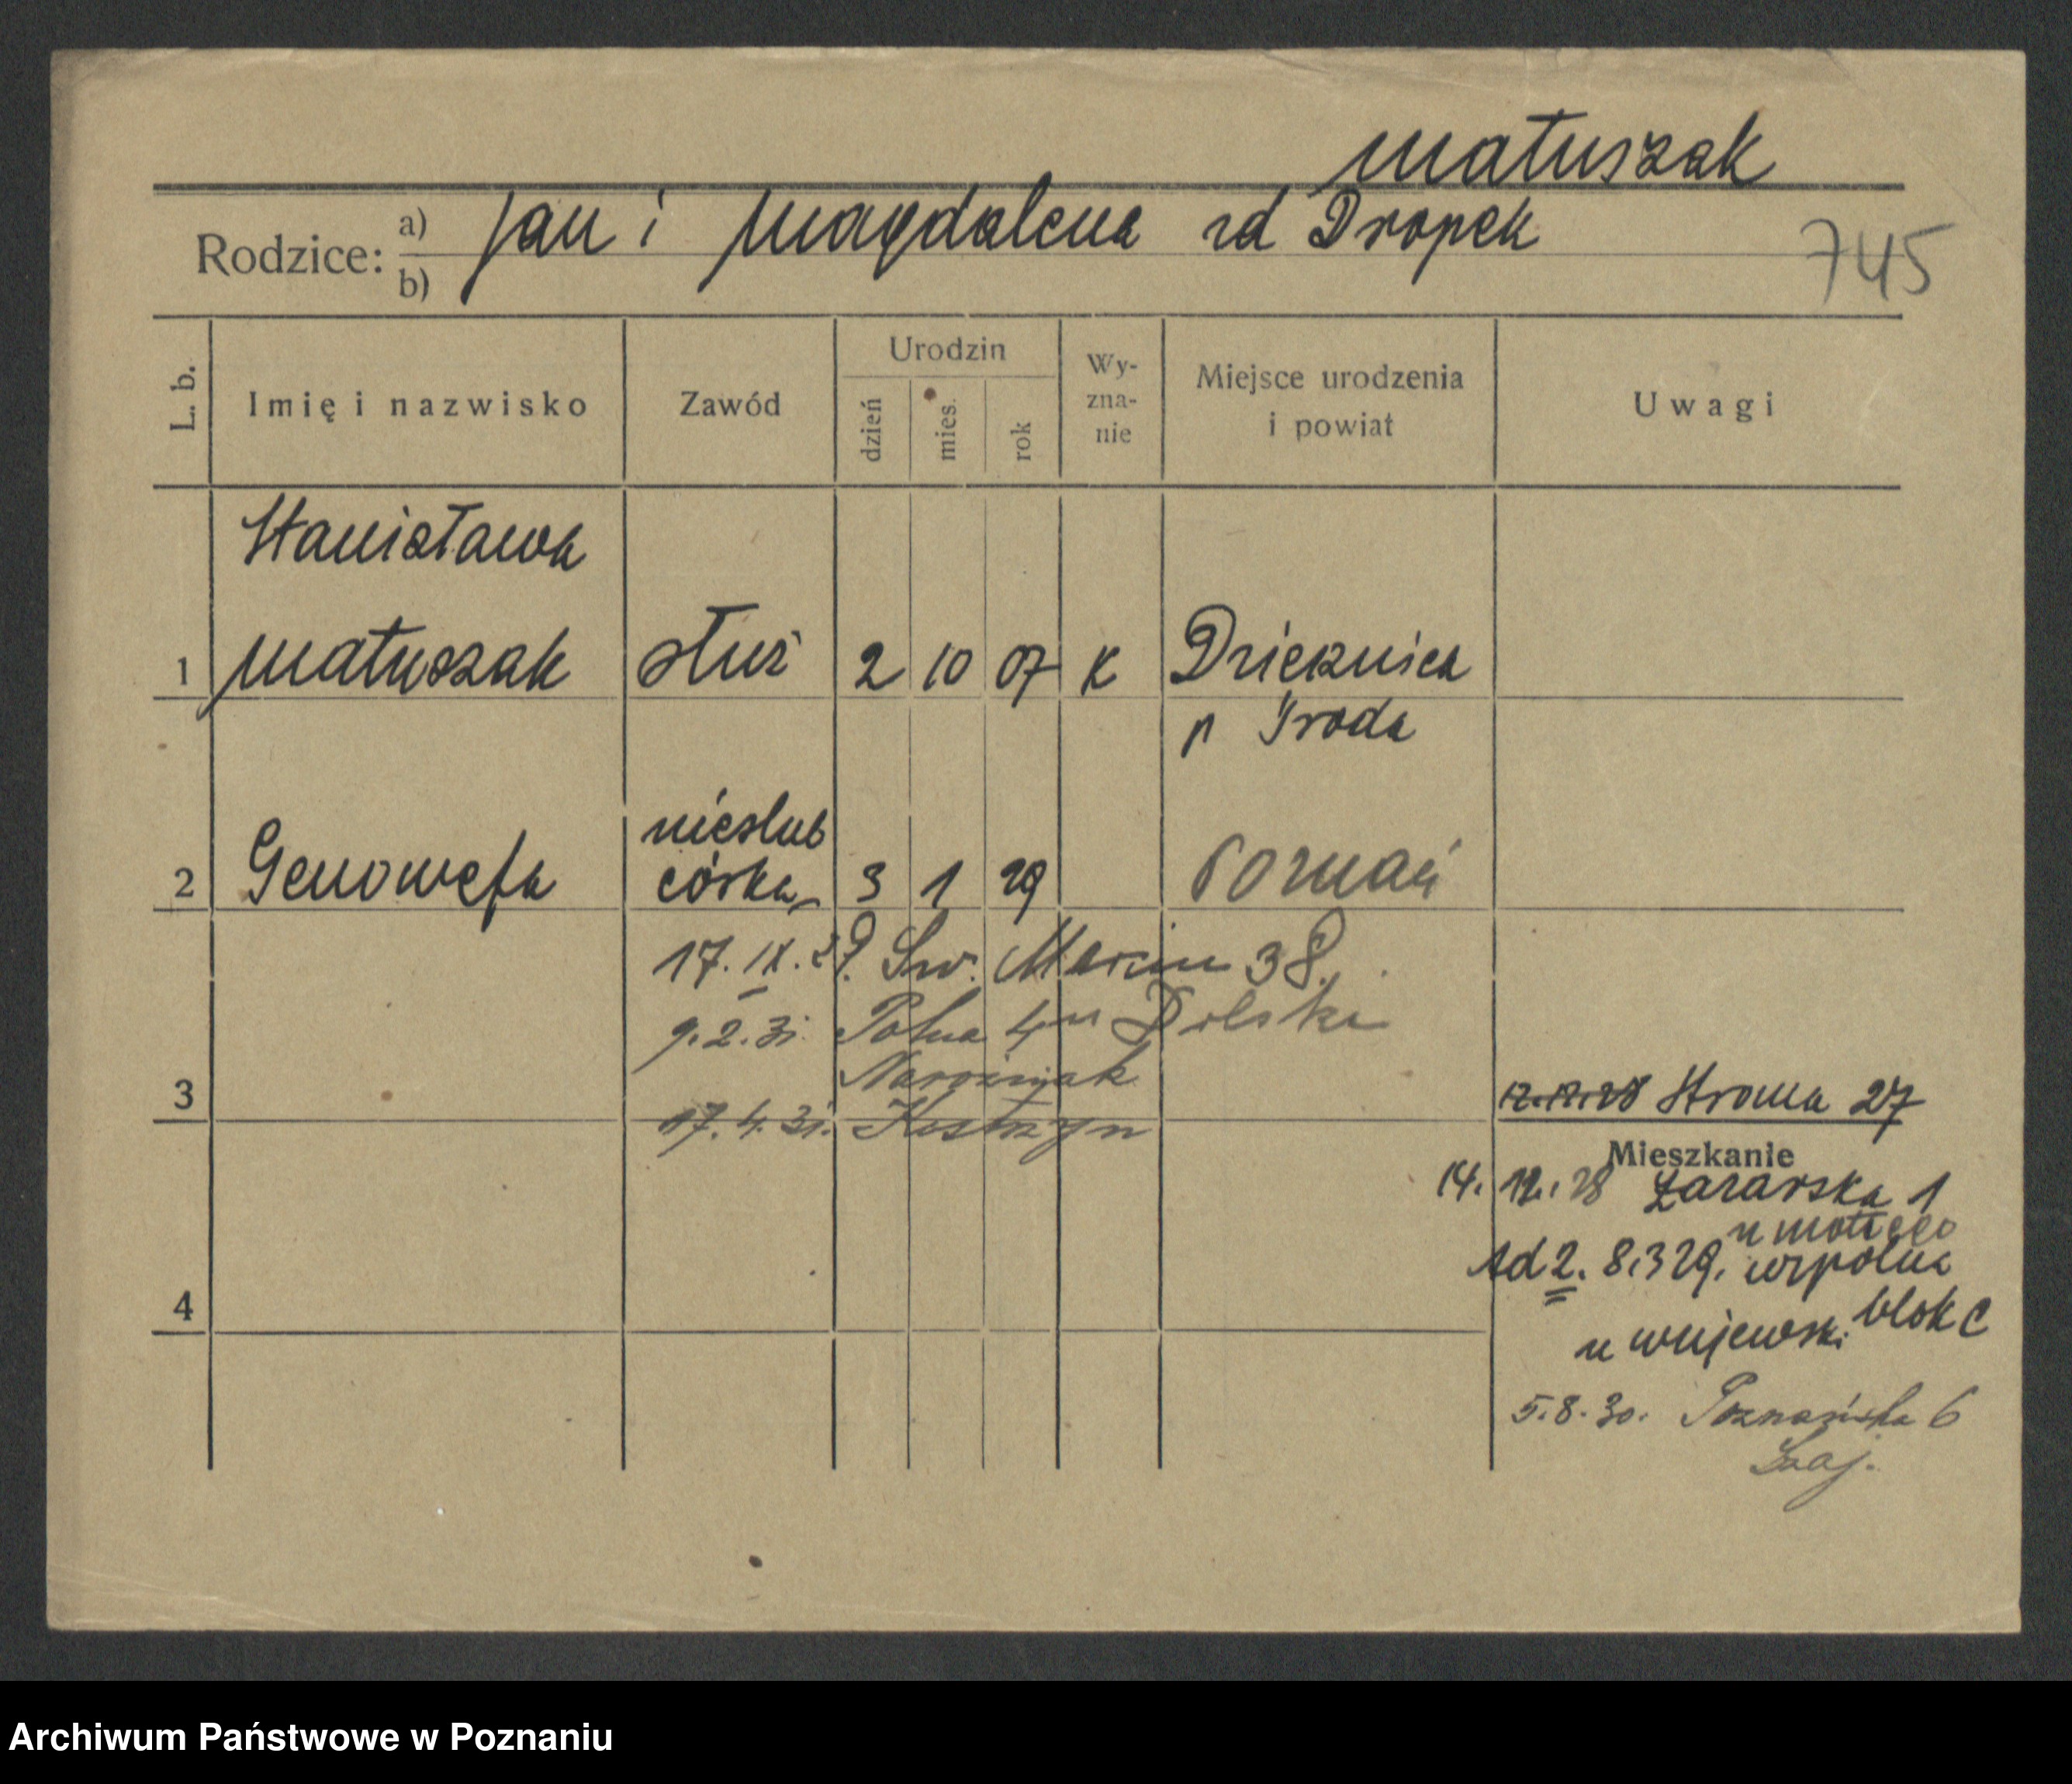 Matuszak
Rodzice: a) Jan i Magdalena zd Dropek
b)
745
L. b.
Imię i nazwisko
Zawód
Urodzin
dzień
mies.
rok
Wy-
zna-
nie
Miejsce urodzenia
i powiat
Uwagi
Stanisława
1 Matuszak służ 2 10 07 K Dzieznica
p Sroda
nieslub
2 Genowefa córka 3 1 29 Poznań
17. IX. 29. Św. Marcin 38.
9.2.31. Polna 4 u Dolski
3
17.4.31. Kostrzyn
12.12.28 Stroma 27
Mieszkanie
14. 12. 28 Łazarska 1
Ad 2. 8.3 29. wspólna
4
u wujewski blok C
5.8.30. Poznańska 6
Archiwum Państwowe w Poznaniu